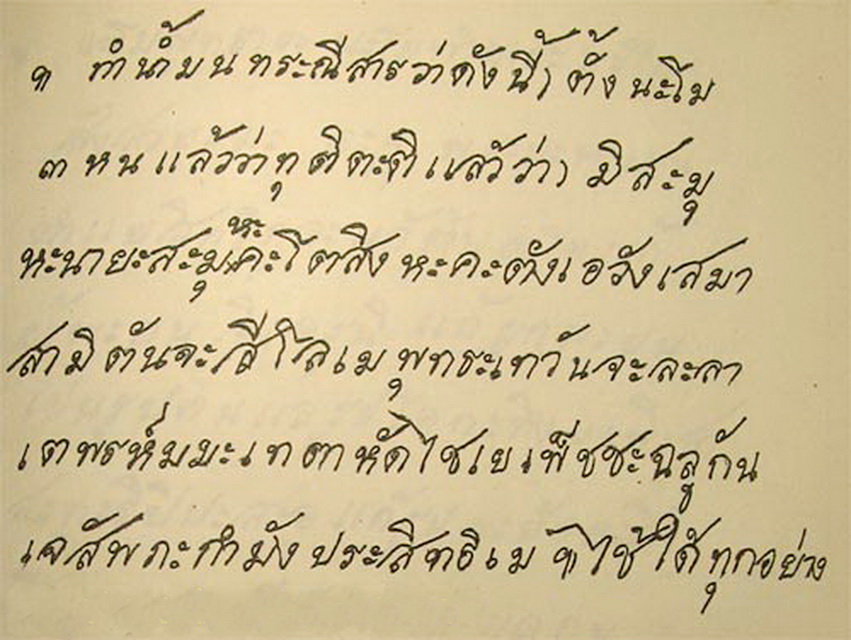 ๆ ทำน้ำมนทระณีสารว่าดังนี้) ตั้ง นะโม
๓ หน แล้วว่าทุติตะติแล้ว ว่า) มิสะมุ
หะนายะสะมุหะคะโตสิง หะคะตังเอวังเสมา
สามิตันจะสีโลเม พุทธะเทวันจะละลา
เตพรห์มมะเทตาหัดไชเยเพ็ชชะฉลูกัน
เจสัพภะกำมังประสิทธิเม ๆ ใช้ได้ทุกอย่าง